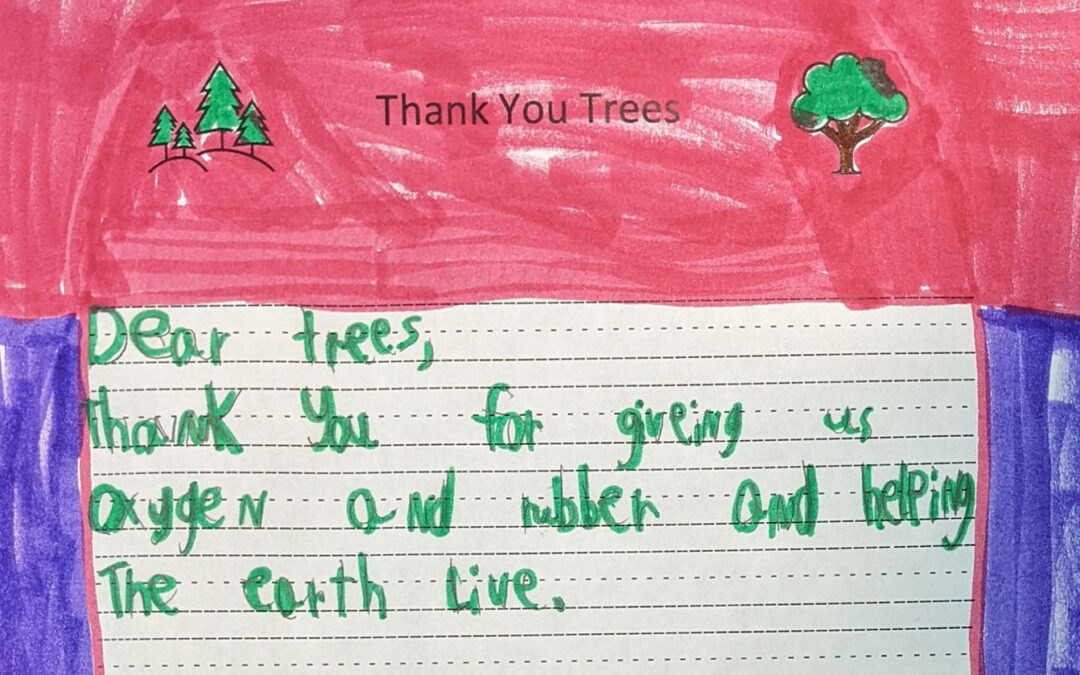 Thank You Trees
Dear trees,
thank you for giveing us
oxygen and rubber and helping
The earth Live.